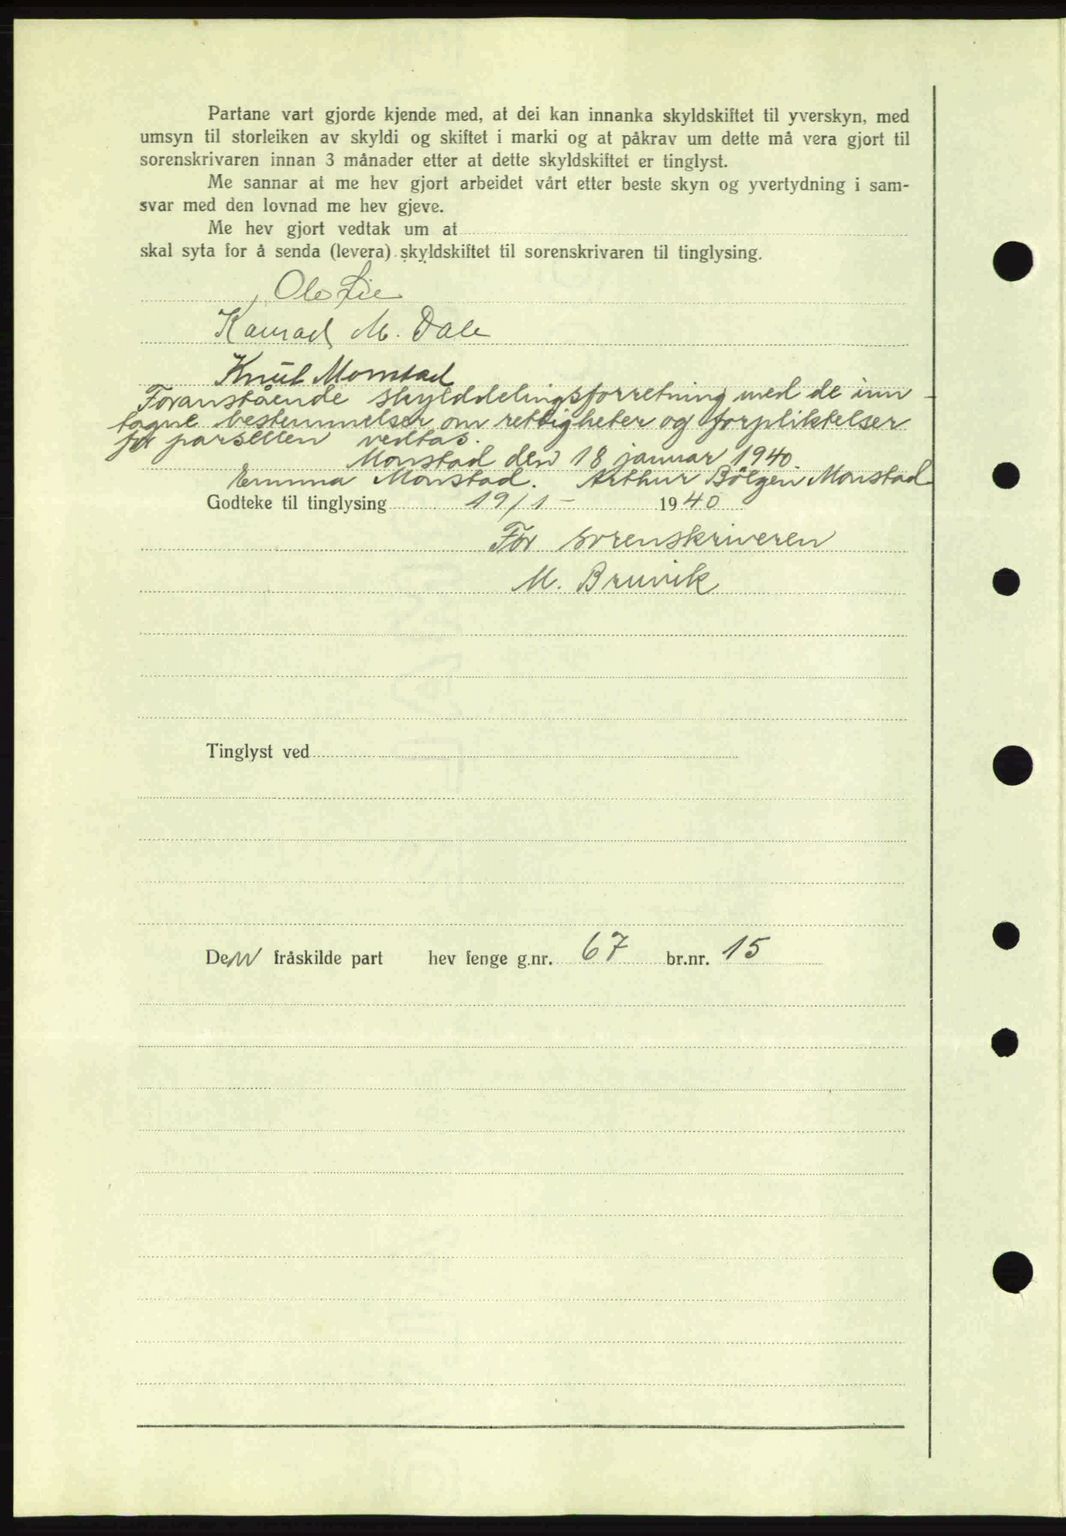 Partane vart gjorde kjende med, at dei kan innanka skyldskiftet til yverskyn, med
umsyn til storleiken av skyldi og skiftet i marki og at påkrav um dette må vera gjort til
sorenskrivaren innan 3 månader etter at dette skyldskiftet er tinglyst.
Me sannar at me hev gjort arbeidet vårt etter beste skyn og yvertydning i sam-
svar med den lovnad me hev gjeve.
Me hev gjort vedtak um at
skal syta for å senda (levera) skyldskiftet til sorenskrivaren til tinglysing.
Ole Lie
Konrad M. Dale
Knut Monstad
Foranstående skylddelingsforretning med de inn-
tagne bestemmelser om rettigheter og forpliktelser
for parsellen vedtas.
Monstad den 18 januar 1940.
Emma Monstad. Arthur Bölgen Monstad
Godteke til tinglysing 19/1- 1940
For sorenskriveren
M. Bruvik
Tinglyst ved
Den fråskilde part hev fenge g.nr. 67 br.nr. 15